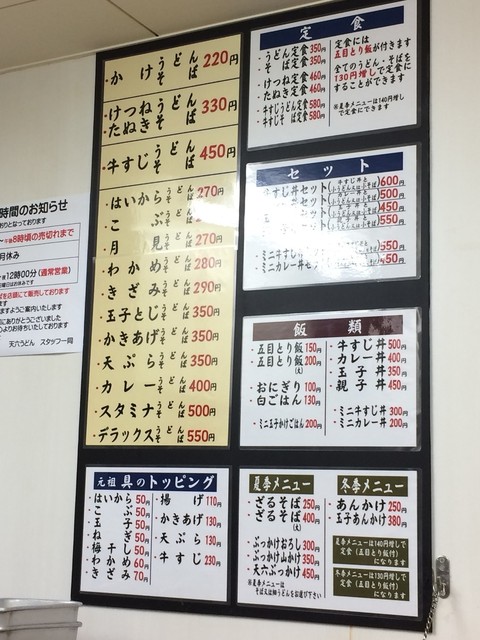 かけ うどん そば 220円
けつねうどん
たぬきそば 330円
牛すじ うどん そば 450円
はいから うどん そば 270円
こぶ うどん そば
月見 うどん そば 270円
わかめ うどん そば 280円
きざみ うどん そば 290円
玉子とじ うどん そば 350円
かきあげ うどん そば 350円
天ぷら うどん そば 350円
カレー うどん そば 400円
スタミナ うどん そば 500円
デラックス うどん そば 550円
定食
・うどん定食 350円
・そば定食 350円
・けつね定食 460円
・たぬき定食 460円
・牛すじうどん定食 580円
・牛すじそば定食 580円
定食には
五目とり飯が付きます
全てのうどん・そばを
130円増しで定食に
することができます
※夏季メニューは140円増し
で定食にできます
セット
牛すじ丼セット 600円
カレー丼セット 500円
玉子丼セット 450円
親子丼セット 550円
ミニ牛すじ丼セット 550円
ミニカレー丼セット 450円
飯類
・五目とり飯 150円
・五目とり飯(大) 200円
・おにぎり 100円
・白ごはん 130円
・ミニ玉子かけごはん 200円
・牛すじ丼 500円
・カレー丼 400円
・玉子丼 350円
・親子丼 450円
・ミニ牛すじ丼 300円
・ミニカレー丼 200円
元祖 具のトッピング
・はいから 50円
・こぶ 50円
・玉子 50円
・ねぎ 50円
・梅干し 50円
・わかめ 60円
・きざみ 70円
・揚げ 110円
・かきあげ 130円
・天ぷら 130円
・牛すじ 230円
夏季メニュー
・ざるそば 250円
・ざるそば(大) 400円
・ぶっかけおろし 300円
・ぶっかけ山かけ 350円
・天六ぶっかけ 450円
※夏季メニューは
そば又は細うどんをお選び下さい
冬季メニュー
・あんかけ 250円
・玉子あんかけ 380円
夏季メニューは140円増しで
定食(五目とり飯付)
になります
冬季メニューは130円増しで
定食(五目とり飯付)
になります
時間のお知らせ
おりとなっております
午後8時頃の売切れまで
月休み
夜12時00分(通常営業)
日曜日はお休みです
を店頭にて販売しております
ますようご案内いたします
にありがとうございました
心よりお待ちいたしております
天六うどん スタッフ一同